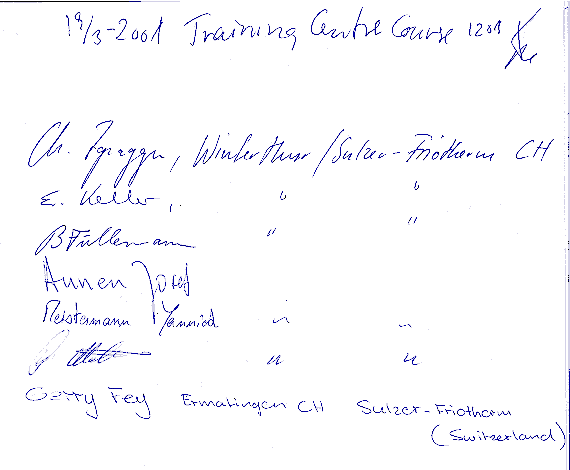 19/3-2001 Training Centre Course 1201
Ch. Zgraggen, Winterthur / Sulzer-Friotherm CH
E. Keller, " "
B Füllemann " "
Annen Josef
Meistermann Yannick " "
" "
Gerry Fey Ermatingen CH Sulzer-Friotherm
(Switzerland)